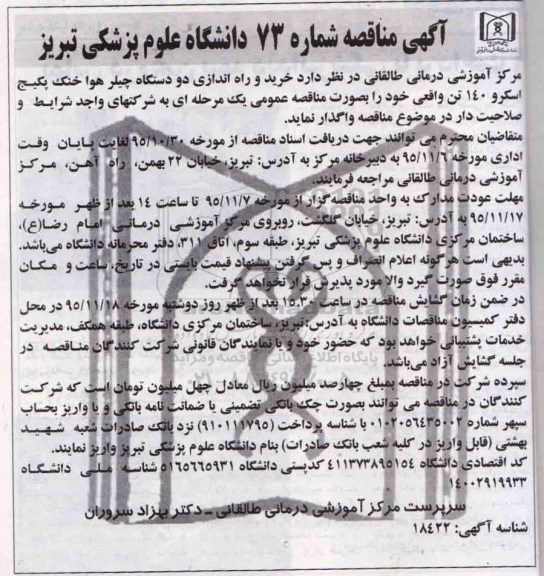 آگهی مناقصه شماره ۷۳ دانشگاه علوم پزشکی تبریز
مرکز آموزشی درمانی طالقانی در نظر دارد خرید و راه اندازی دو دستگاه چیلر هوا خنک پکیج
اسکرو ۱۴۰ تن واقعی خود را بصورت مناقصه عمومی یک مرحله ای به شرکتهای واجد شرایط و
صلاحیت دار در موضوع مناقصه واگذار نماید.
متقاضیان محترم می توانند جهت دریافت اسناد مناقصه از مورخه ۹۵/۱۰/۳۰ لغایت پایان وقت
اداری مورخه ۹۵/۱۱/۶ به دبیرخانه مرکز به آدرس: تبریز، خیابان ۲۲ بهمن، راه آهن، مرکز
آموزشی درمانی طالقانی مراجعه فرمایند.
مهلت عودت مدارک به واحد مناقصه گزار از مورخه ۹۵/۱۱/۷ تا ساعت ۱۴ بعد از ظهر مورخه
۹۵/۱۱/۱۷ به آدرس: تبریز، خیابان گلگشت، روبروی مرکز آموزشی درمانی امام رضا(ع)،
ساختمان مرکزی دانشگاه علوم پزشکی تبریز، طبقه سوم، اتاق ۳۱۱، دفتر محرمانه دانشگاه می‌باشد.
بدیهی است هرگونه اعلام انصراف و پس گرفتن پیشنهاد قیمت بایستی در تاریخ، ساعت و مکان
مقرر فوق صورت گیرد والا مورد پذیرش قرار نخواهد گرفت.
در ضمن زمان گشایش مناقصه در ساعت ۱۵:۳۰ بعد از ظهر روز دوشنبه مورخه ۹۵/۱۱/۱۸ در محل
دفتر کمیسیون مناقصات دانشگاه به آدرس: تبریز، ساختمان مرکزی دانشگاه، طبقه همکف، مدیریت
خدمات پشتیبانی خواهد بود که حضور خود و یا نمایندگان قانونی شرکت کنندگان مناقصه در
جلسه گشایش آزاد می‌باشد.
سپرده شرکت در مناقصه بمبلغ چهارصد میلیون ریال معادل چهل میلیون تومان است که شرکت
کنندگان در مناقصه می توانند بصورت چک بانکی تضمینی یا ضمانت نامه بانکی و یا واریز بحساب
سپهر شماره ۰۱۰۲۰۵۶۴۳۵۰۰۲ با شناسه پرداخت (۹۱۰۱۱۱۷۹۵) نزد بانک صادرات شعبه شهید
بهشتی (قابل واریز در کلیه شعب بانک صادرات) بنام دانشگاه علوم پزشکی تبریز واریز نمایند.
کد اقتصادی دانشگاه ۴۱۱۳۷۳۸۹۵۱۵۴ کدپستی دانشگاه ۵۱۶۵۶۶۵۹۳۱ شناسه ملی دانشگاه
۱۴۰۰۲۹۱۹۹۳۳
سرپرست مرکز آموزشی درمانی طالقانی – دکتر بهزاد سروران
شناسه آگهی: ۱۸۴۲۲